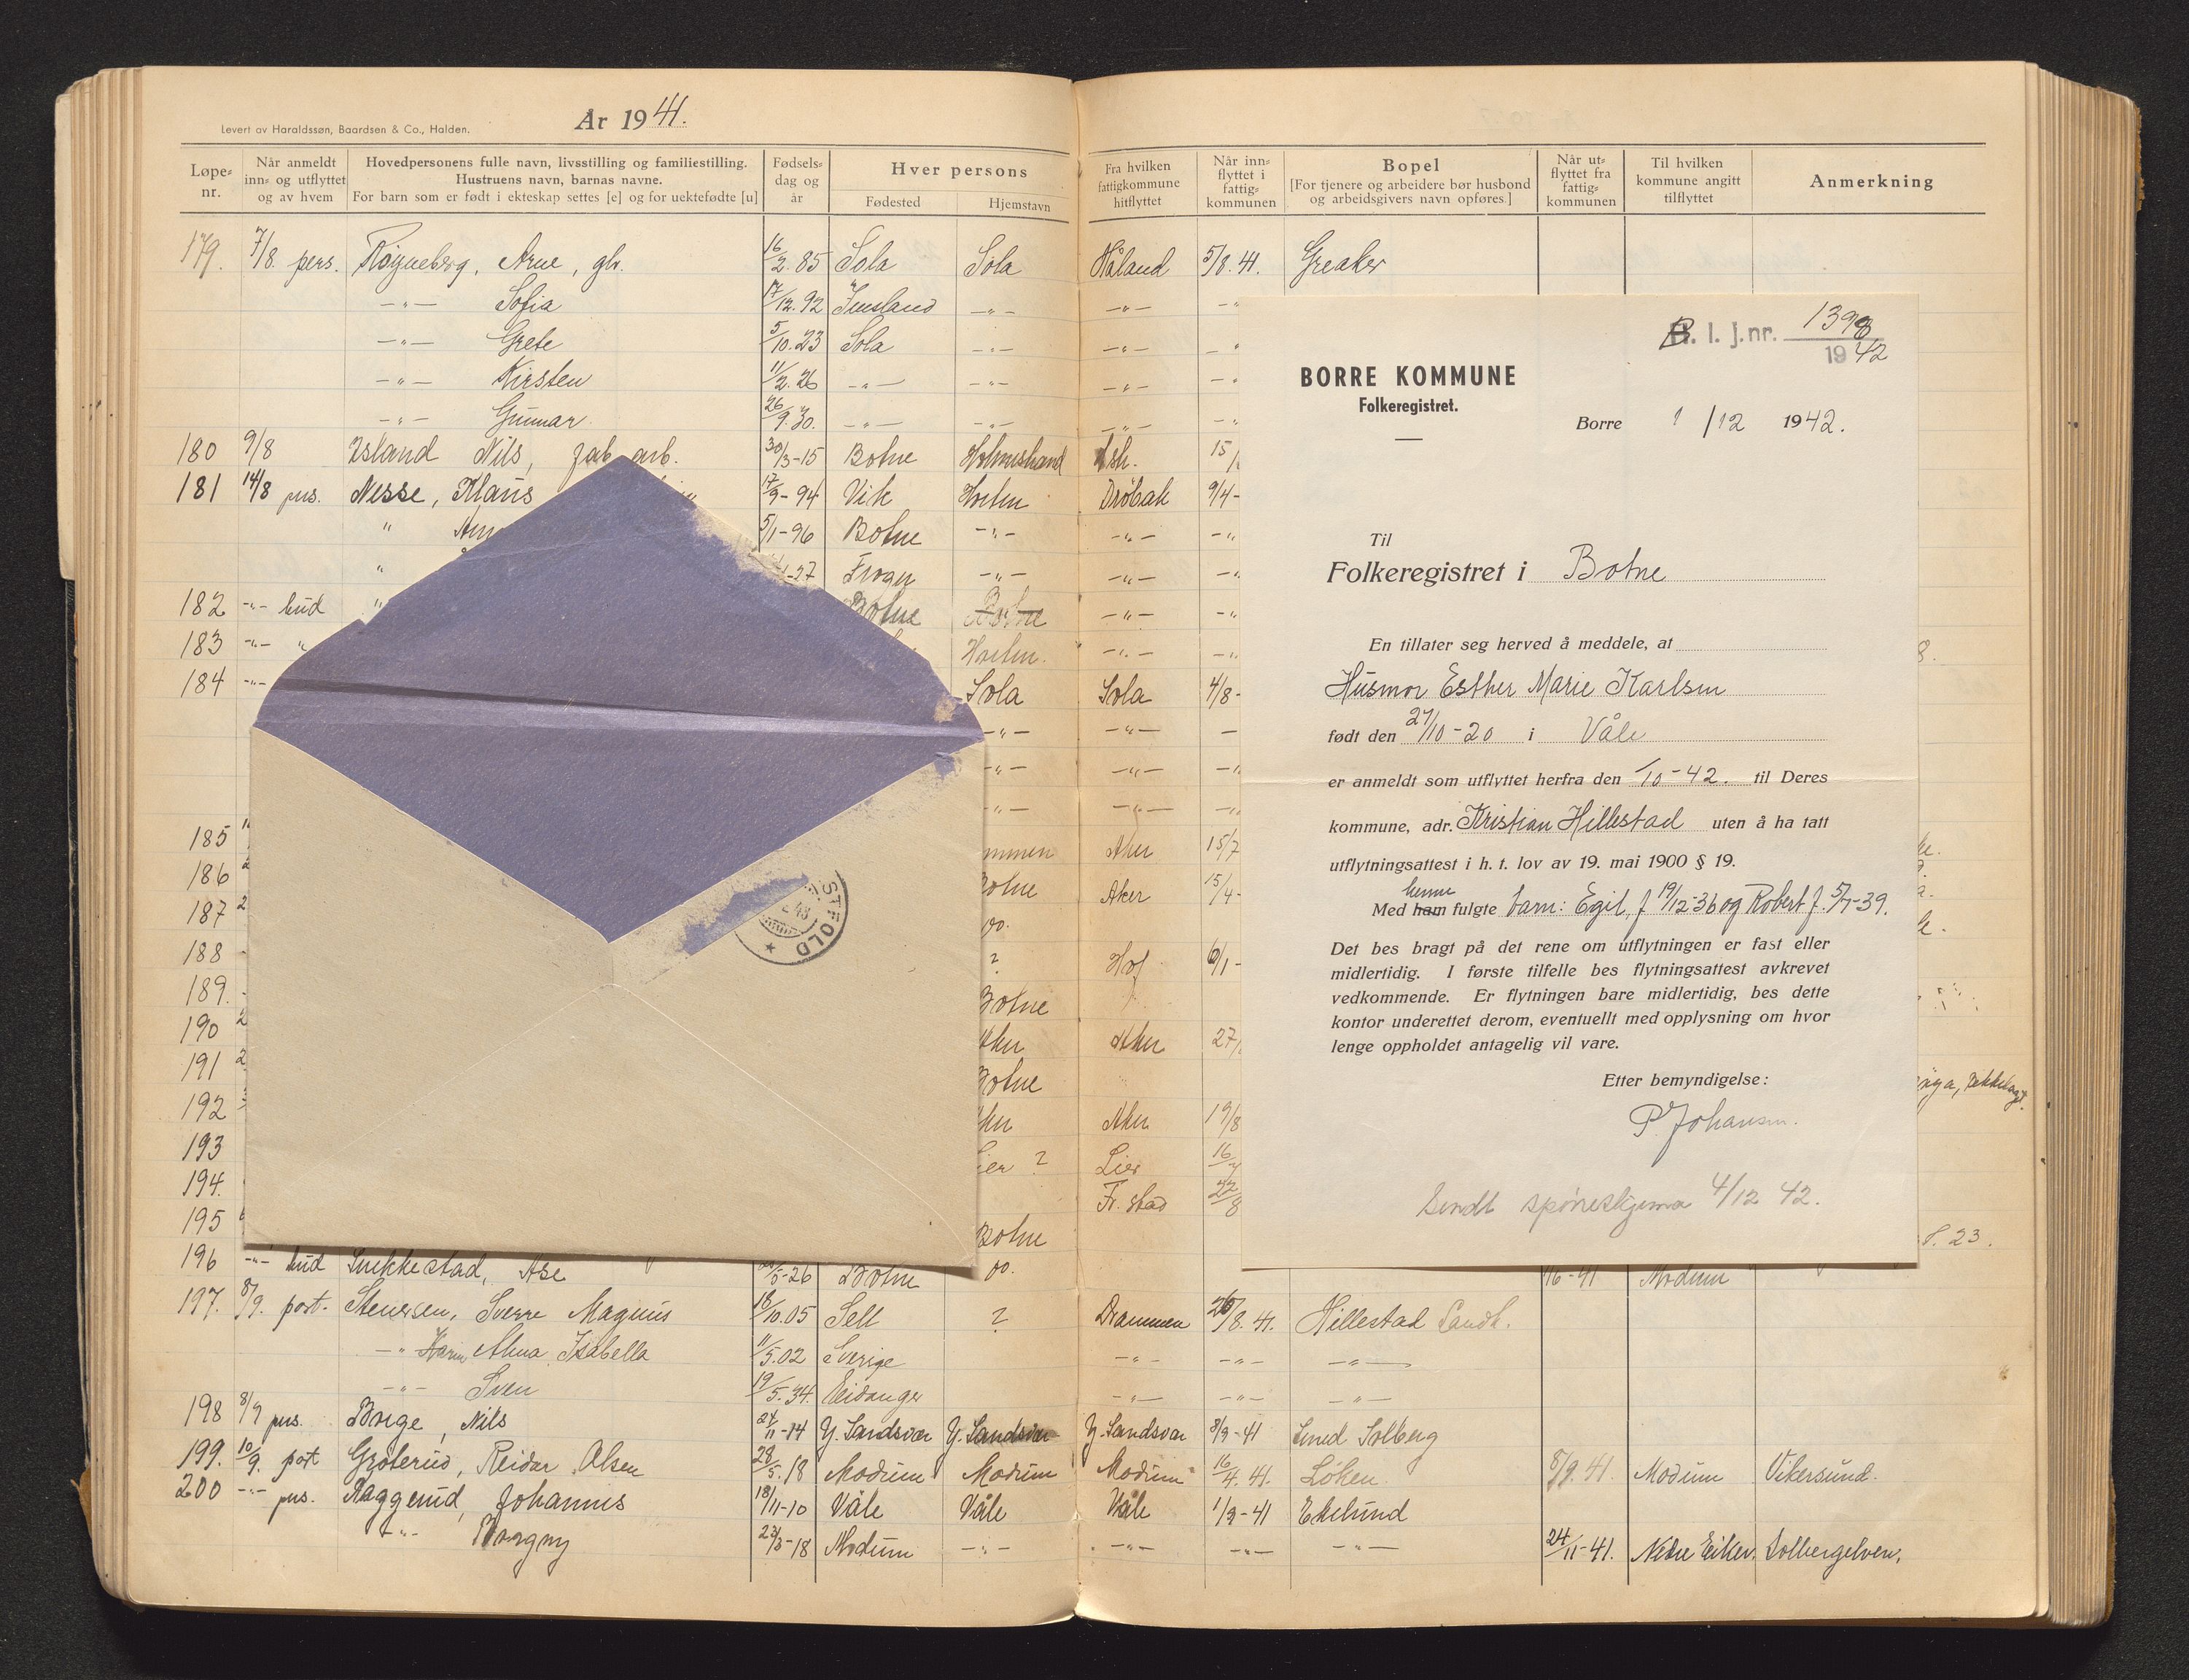 Levert av Haraldssøn, Baardsen & Co., Halden.
År 1941.
Løpe=nr.
Når anmeldt inn= og utflyttet og av hvem
Hovedpersonens fulle navn, livsstilling og familiestilling.
Hustruens navn, barnas navne.
For barn som er født i ekteskap settes [e] og for uektefødte [u]
Fødsels=dag og år
Hver persons
Fødested
Hjemstavn
Fra hvilken fattigkommune hitflyttet
Når inn=flyttet i fattig=kommunen
Bopel
[For tjenere og arbeidere bør husbond og arbeidsgivers navn opføres.]
Når ut=flyttet fra fattig=kommunen
Til hvilken kommune angitt tilflyttet
Anmerkning
179. 7/8 pers. Røyneberg, Arne, gbr. 16/2.85 Sola Sola Håland 5/8.41. Greaker
-"- Sofia 17/12.92 -"- -"- -"
-"- Grete 5/10.23 Sola -"- -"- -"
-"- Kirsten 11/2.26 -"- -"- -"- -"
-"- Gunnar 26/9.30. -"- -"- -"- -"
180 9/8 Island Nils, fab. arb. 30/3-15 Botne Holmestrand 15/
181 14/8 pers. Nesse, Klaus 17/9-94 Vik Holm Drøbak 9/4-
" 5/1-96 Botne -"- -"- -"
" -27 Frogn -"- -"- -"
182 -"- bud " Botne Botne -"- -"
183 -"- " Holm. -"- -"
184 -"- Sola Sola 4/8-
-"- -"- -
-"- -"- -"
-"- -"- -"
185 mmen Aker 15/7
186 2 Botne Aker 15/4-
187 2 do.
188 ? Hof 6/1-
189. Botne
190 2 Aker Aker 27/
191 2 Botne
192 Aker Aker 19/8
193 Lier ? Lier 16/
194. Fr.stad 22/8
195 Botne
196 -"- bud Snekkestad, Åse 5-26 Botne do. 16-41 Modum
197. 8/9. post. Stenersen, Sverre Magnus 18/10.05 Sell ? Drammen 26/8.41. Hillestad Landh.
-"- Karin Alma Isabella 11/5.02 Sverige -"- -"- -"-
-"- Sven 19/5.34. Eidanger -"- -"- -"-
198 8/9 pers. Borge, Nils 24/11-14 Y. Sandsvær Y. Sandsvær Y. Sandsvær 8/9-41 Smed Solberg
199. 10/9. post Grøterud, Reidar Olsen 28/5.18 Modum Modum Modum 16/4.41. Løken. 8/9.41. Modum Vikersund.
200 -"- pers. Raggerud, Johannes 18/11-10 Våle Våle Våle 1/9-41 Ekelund
-"- Borgny 23/3-18 Modum -"- -"- -"- -"- 24/11-41. Nedre Eiker. Solbergelven.
STFOLD
43
B. l. j.nr. 1398
1942
BORRE KOMMUNE
Folkeregistret.
Borre 1/12 1942.
Til
Folkeregistret i Botne
En tillater seg herved å meddele, at
Husmor Esther Marie Karlsen
født den 27/10-20 i Våle
er anmeldt som utflyttet herfra den /10-42. til Deres
kommune, adr. Kristian Hillestad uten å ha tatt
utflytningsattest i h. t. lov av 19. mai 1900 § 19.
Med ham henne fulgte barn: Egil, f 19/12-36 og Robert f. 5/7-39.
Det bes bragt på det rene om utflytningen er fast eller
midlertidig. I første tilfelle bes flytningsattest avkrevet
vedkommende. Er flytningen bare midlertidig, bes dette
kontor underettet derom, eventuellt med opplysning om hvor
lenge oppholdet antagelig vil vare.
Etter bemyndigelse:
P. Johansen.
Sendt spørreskjema 4/12 42.
8.
S. 23.